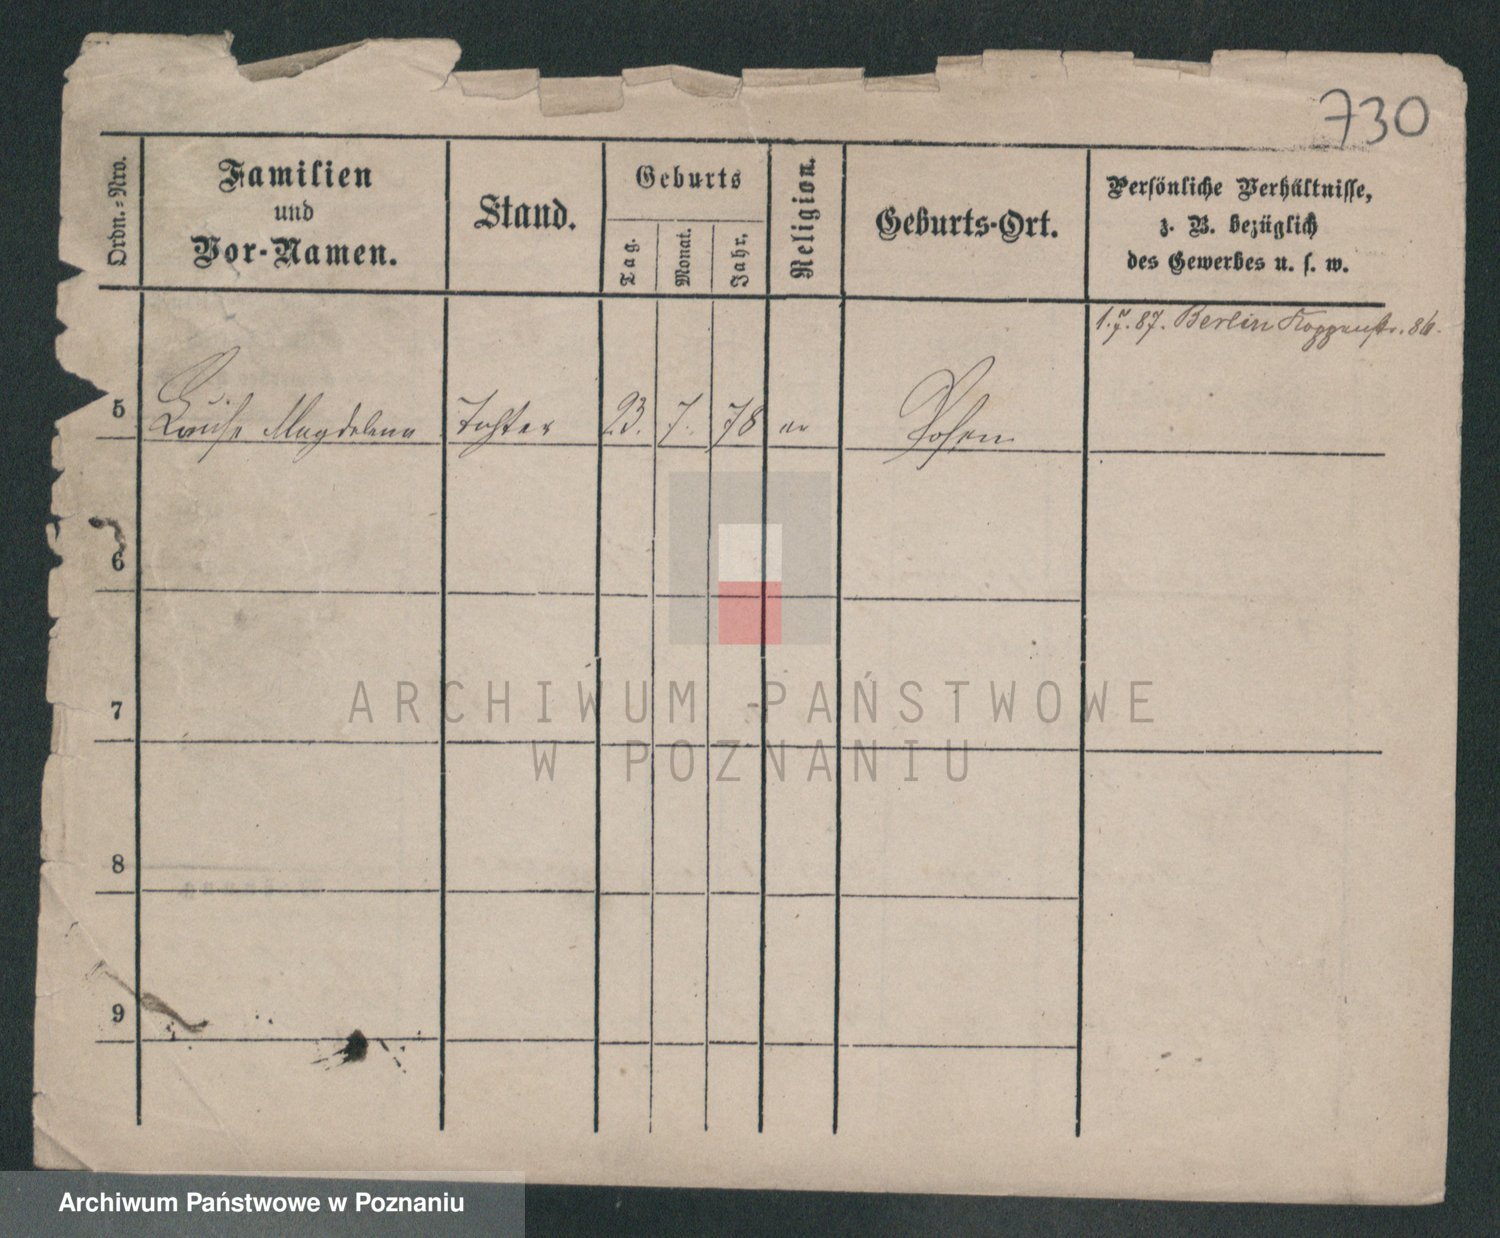 730
Ordn.-Nro.
Familien
und
Vor-Namen.
Stand.
Geburts
Tag.
Monat.
Jahr.
Religion.
Geburts-Ort.
Persönliche Verhältnisse,
z. B. bezüglich
des Gewerbes u. s. w.
1.7.87. Berlin Koppenstr. 86.
5 Louise Magdalena Tochter 23. 7. 78 ev Posen
6
7
8
9
ARCHIWUM PAŃSTWOWE
W POZNANIU
Archiwum Państwowe w Poznaniu